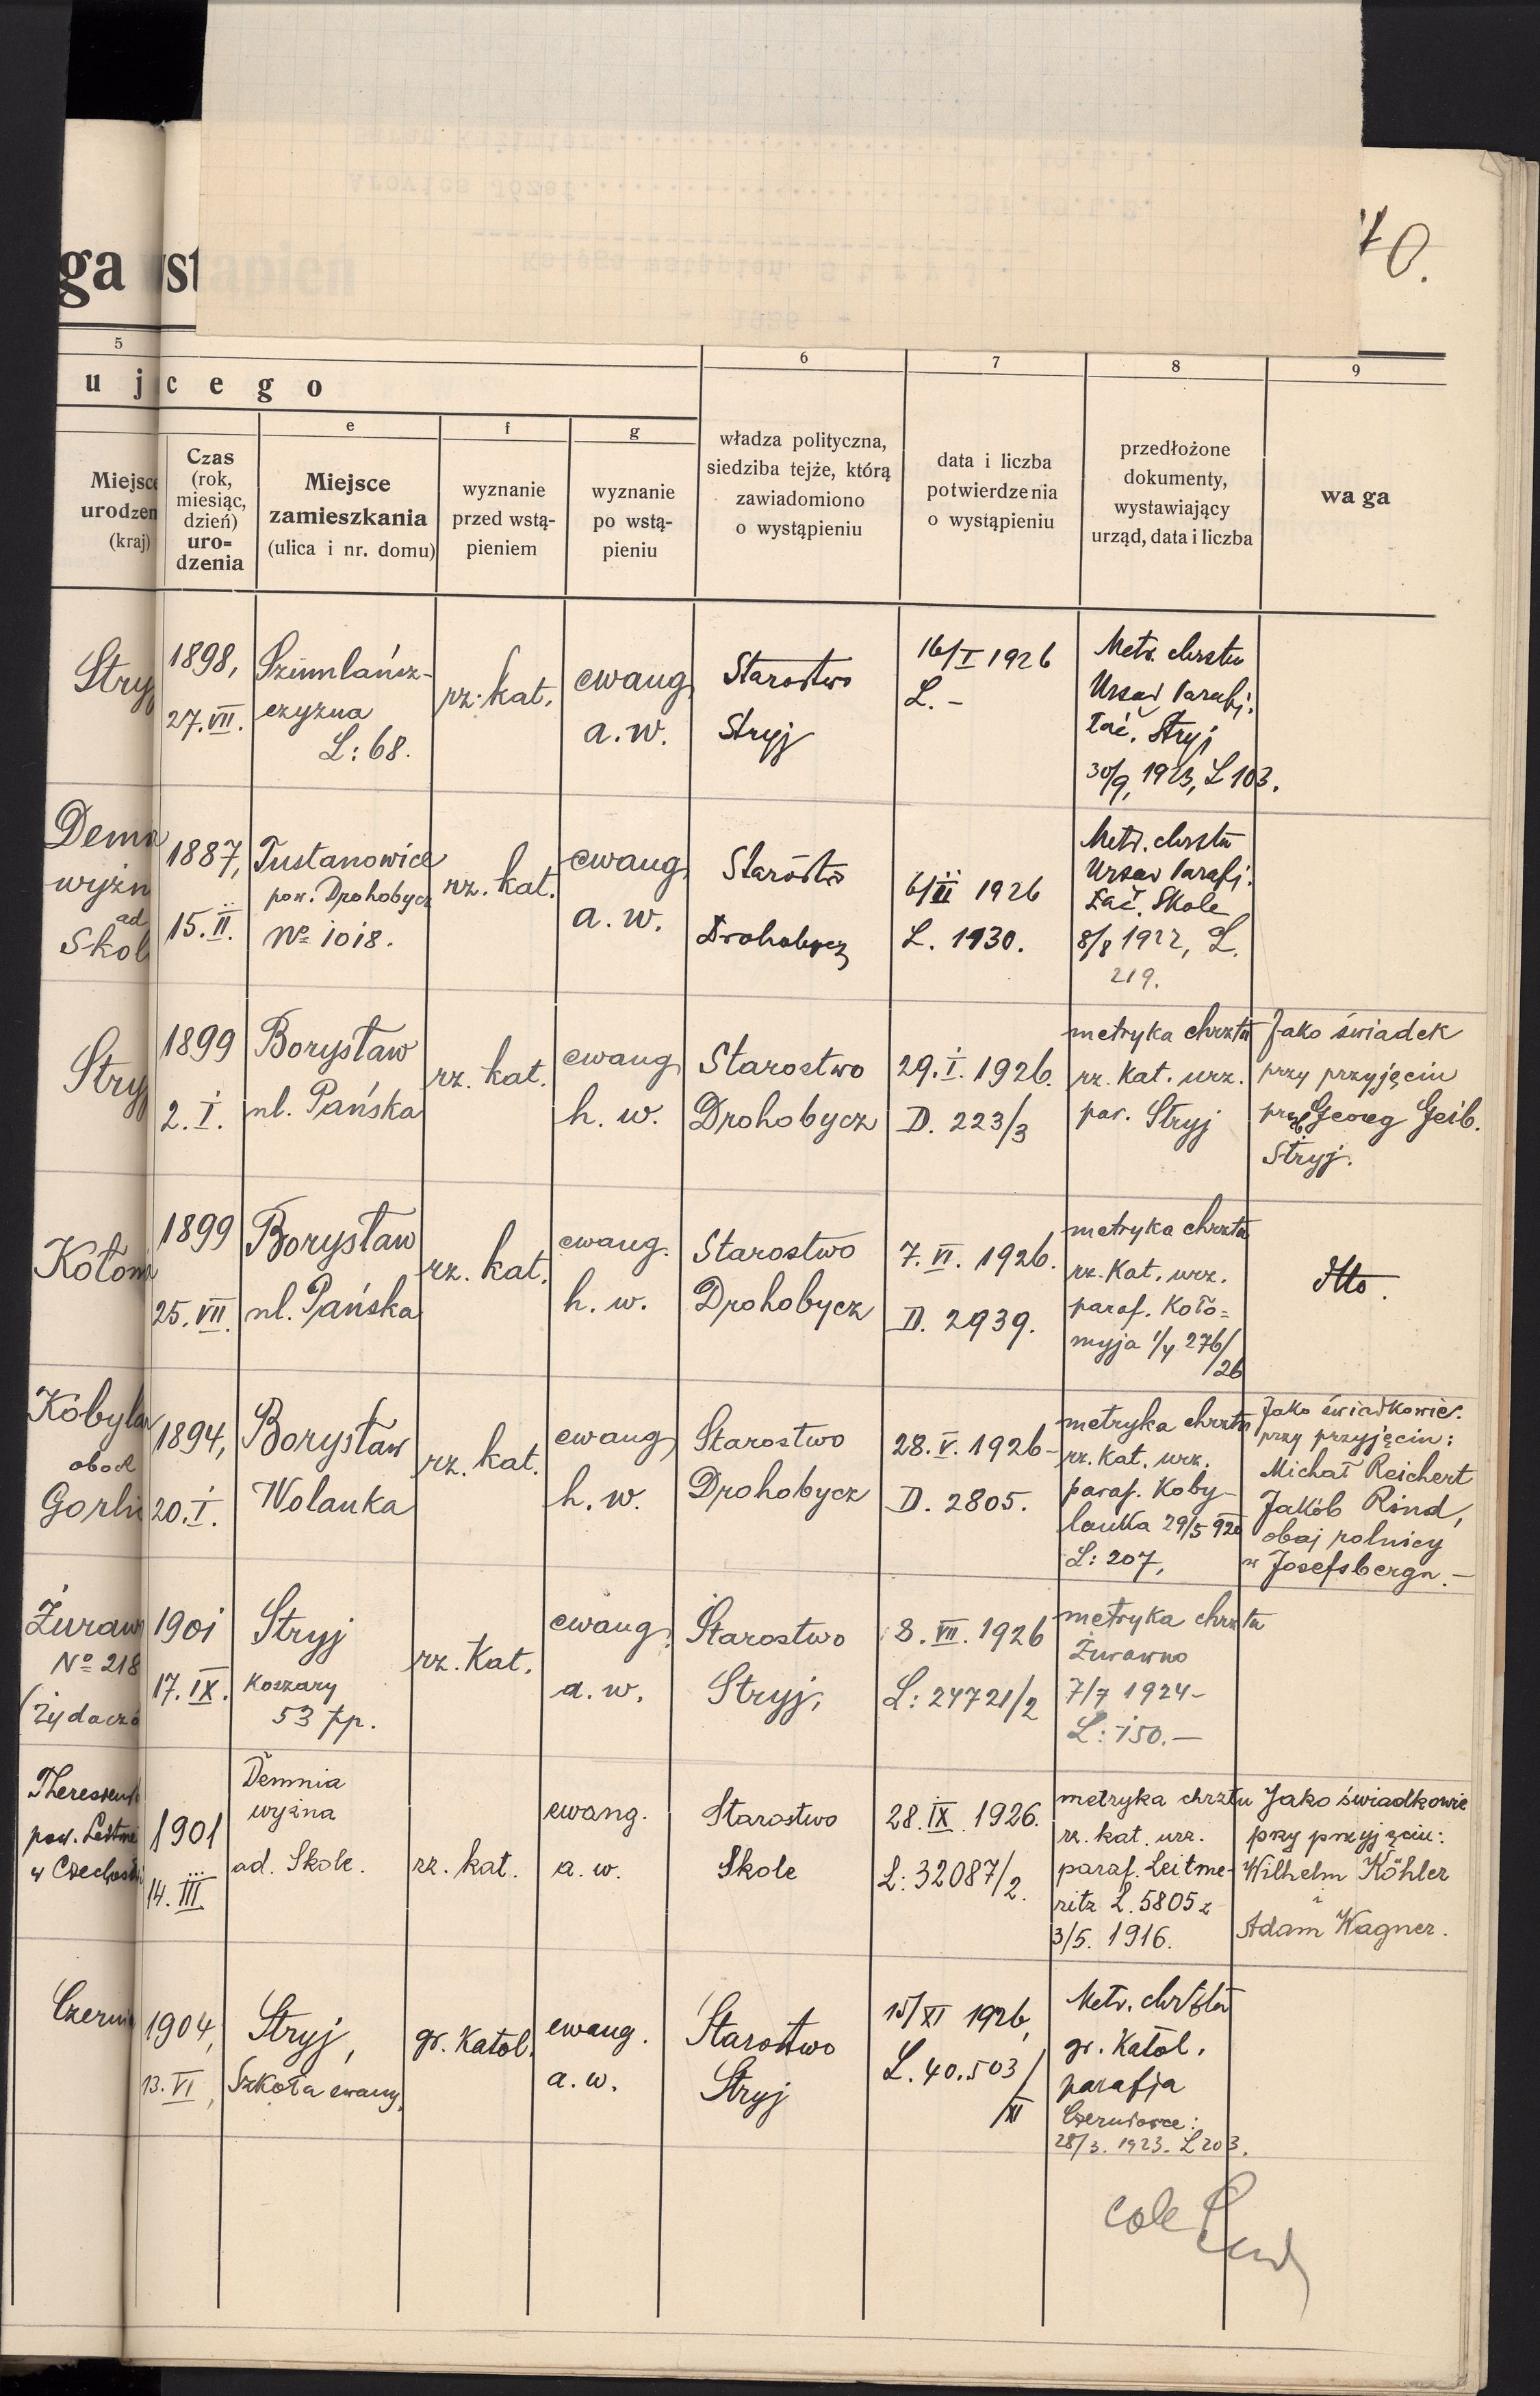 ga wst
40.
5
6
7
8
9
u j c e g o
e
f
g
Miejsce
urodzen
(kraj)
Czas
(rok,
miesiąc,
dzień)
uro=
dzenia
Miejsce
zamieszkania
(ulica i nr. domu)
wyznanie
przed wstą-
pieniem
wyznanie
po wstą-
pieniu
władza polityczna,
siedziba tejże, którą
zawiadomiono
o wystąpieniu
data i liczba
potwierdzenia
o wystąpieniu
przedłożone
dokumenty,
wystawiający
urząd, data i liczba
waga
Stryj
1898,
27. VII.
Szumlańsz-
czyzna
L: 68.
rz. kat.
ewang
a. w.
Starostwo
Stryj
16/I 1926
L. -
Metr. chrztu
Urząd Parafj.
łać. Stryj
30/9, 1923, L 103.
Demn
wyżn
ad
Skol
1887,
15. II.
Tustanowice
pow. Drohobycz
No 1018.
rz. kat.
ewang
a. w.
Starostwo
Drohobycz
6/III 1926
L. 1930.
Metr. chrztu
Urząd Parafj.
Łać. Skole
8/8 1922, L.
219.
Stryj
1899
2. I.
Borysław
ul. Pańska
rz. kat.
ewang
h. w.
Starostwo
Drohobycz
29. I. 1926.
D. 223/3
metryka chrztu
rz. kat. urz.
par. Stryj
Jako świadek
przy przyjęciu
Georg Geib.
Stryj.
Kołom
1899
25. VII.
Borysław
ul. Pańska
rz. kat.
ewang.
h. w.
Starostwo
Drohobycz
7. VI. 1926.
D. 2939.
metryka chrztu
rz. kat. urz.
paraf. Koło=
myja 1/4 276/
/26
dtto.
Kobylan
obok
Gorlic
1894,
20. I.
Borysław
Wolanka
rz. kat.
ewang
h. w.
Starostwo
Drohobycz
28. V. 1926-
D. 2805.
metryka chrztu
rz. kat. urz.
paraf. Koby-
lanka 29/5 920
L: 207,
Jako świadkowie.
przy przyjęciu:
Michał Reichert
Jakób Rind,
obaj rolnicy
w Josefsbergu.-
Żurawn
No 218
(Żydaczó
1901
17. IX.
Stryj
koszary
53 pp.
rz. Kat.
ewang.
a. w.
Starostwo
Stryj,
8. VII. 1926
L: 24721/2
metryka chrztu
Żurawno
7/7 1924-
L: 150.-
Theresien
pow. Leitme
w Czechosł
1901
14. III.
Demnia
wyżna
ad. Skole.
rz. kat.
ewang.
a. w.
Starostwo
Skole
28. IX. 1926.
L: 32087/2.
metryka chrztu
rz. kat. urz.
paraf. Leitme-
ritz L. 5805 z
3/5. 1916.
Jako świadkowie
przy przyjęciu:
Wilhelm Köhler
i
Adam Wagner.
Czerni
1904,
13. VI,
Stryj,
Szkoła ewang.
gr. Katol.
ewang.
a. w.
Starostwo
Stryj
15/XI 1926,
L. 40.503/
/XI
Metr. chrztu
gr. Katol.
parafja
28/3. 1923. L 203.